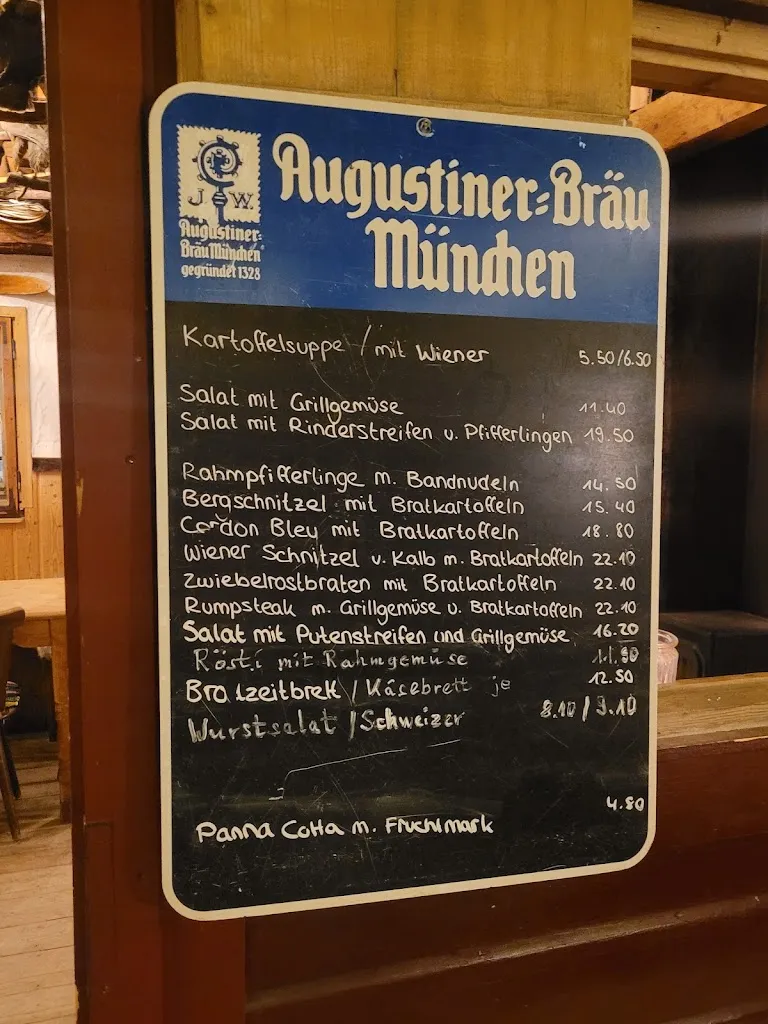 Augustiner-Bräu
München
J W.
Augustiner-
Bräu München
gegründet 1328
Kartoffelsuppe / mit Wiener 5.50/6.50
Salat mit Grillgemüse 11.40
Salat mit Rinderstreifen u. Pfifferlingen 19.50
Rahmpfifferlinge m. Bandnudeln 14.50
Bergschnitzel mit Bratkartoffeln 15.40
Cordon Bley mit Bratkartoffeln 18.80
Wiener Schnitzel v. Kalb m. Bratkartoffeln 22.10
Zwiebelrostbraten mit Bratkartoffeln 22.10
Rumpsteak m. Grillgemüse u. Bratkartoffeln 22.10
Salat mit Putenstreifen und Grillgemüse 16.20
Rösti mit Rahmgemüse 11.90
Brotzeitbrett / Käsebrett je 12.50
Wurstsalat / Schweizer 8.10 / 9.10
Panna Cotta m. Fruchtmark 4.80